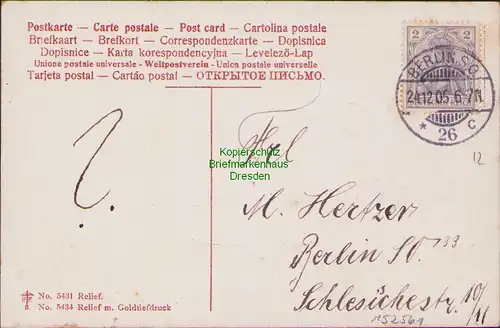 Postkarte — Carte postale — Post card — Cartolina postale
Briefkaart — Brefkort — Correspondenzkarte — Dopisnica
Dopisnice — Karta korespondencyjna — Levelező-Lap
Unione postale universale — Weltpostverein — Union postale universelle
Tarjeta postal — Cartão postal — ОТКРЫТОЕ ПИСЬМО.
2 2
BERLIN, S.O.
24.12.05. 6-7N.
* 26 c
12
?
Frl
Kopierschutz
Briefmarkenhaus
Dresden
M. Hertzer
Berlin SO 33
Schlesischestr. 10/11
152561
No. 5431 Relief.
No. 5434 Relief m. Goldtiefdruck